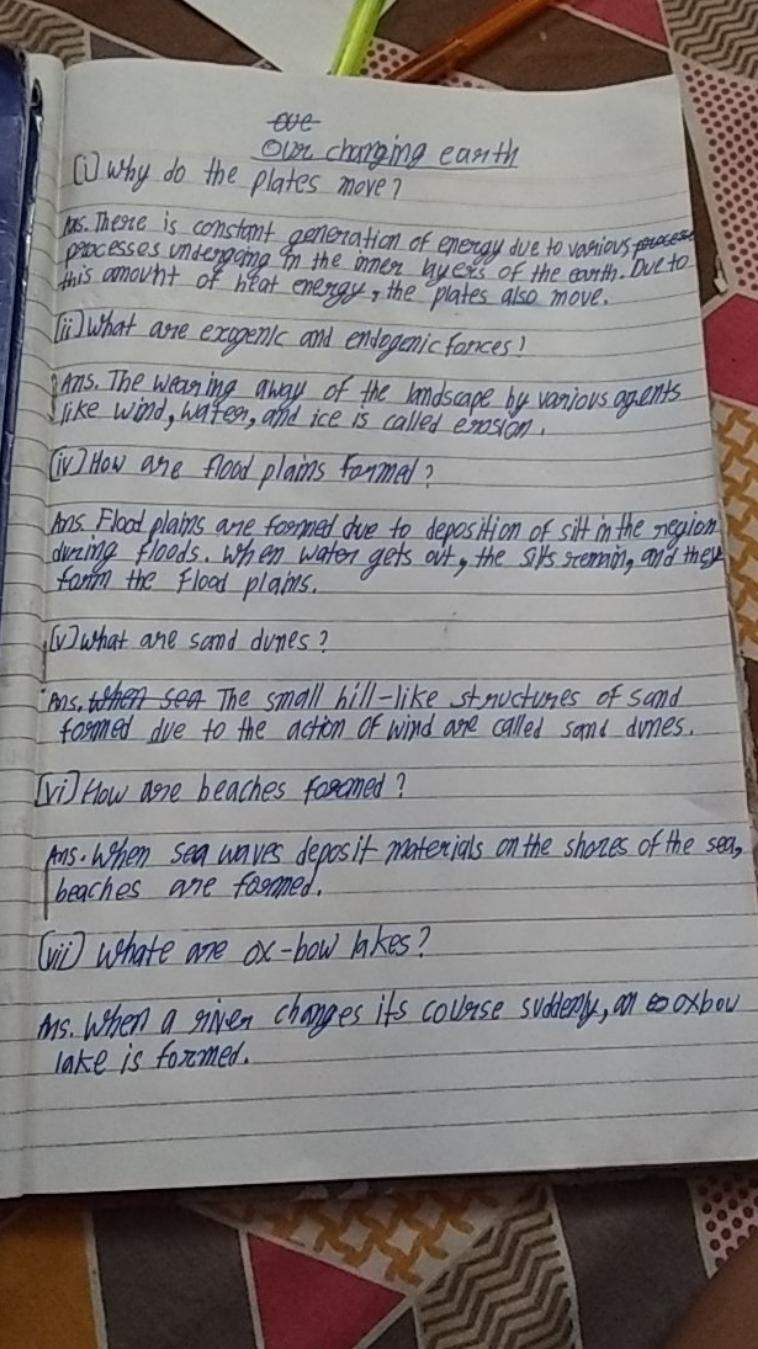 Our changing earth
(i) Why do the plates move?
Ans. There is constant generation of energy due to various
processes undergoing in the inner layers of the earth. Due to
this amount of heat energy, the plates also move.
(ii) What are exogenic and endogenic forces!
Ans. The wearing away of the landscape by various agents
like wind, water, and ice is called erosion.
(iv) How are flood plains formed?
Ans. Flood plains are formed due to deposition of silt in the region
during floods. When water gets out, the silts remain, and they
form the Flood plains.
(v) What are sand dunes?
Ans. When sea The small hill-like structures of sand
formed due to the action of wind are called sand dunes.
(vi) How are beaches formed?
Ans. When sea waves deposit materials on the shores of the sea,
beaches are formed.
(vii) Whate are ox-bow lakes?
Ans. When a river changes its course suddenly, an oxbow
lake is formed.